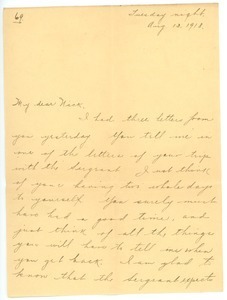 69
Tuesday night,
Aug 13, 1918.
My dear
I had three letters from
you yesterday. You tell me in
one of the letters of your trip
with the Sergeant. Just think
of your having two whole days
to yourself. You surely must
have had a good time, and
just think of all the things
you will have to tell me when
you get back. I am glad to
know that the Sergeant expects